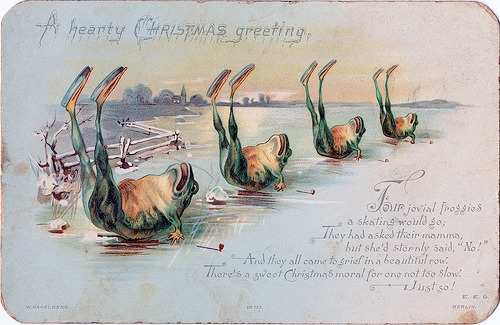 A hearty CHRISTMAS greeting,
Four jovial froggies
a skating would go;
They had asked their mamma,
but she'd sternly said, "No!"
And they all came to grief in a beautiful row.
There's a sweet Christmas moral for one not too slow.
Just so!
E. E. G.
W. HAGELBERG.
BERLIN.